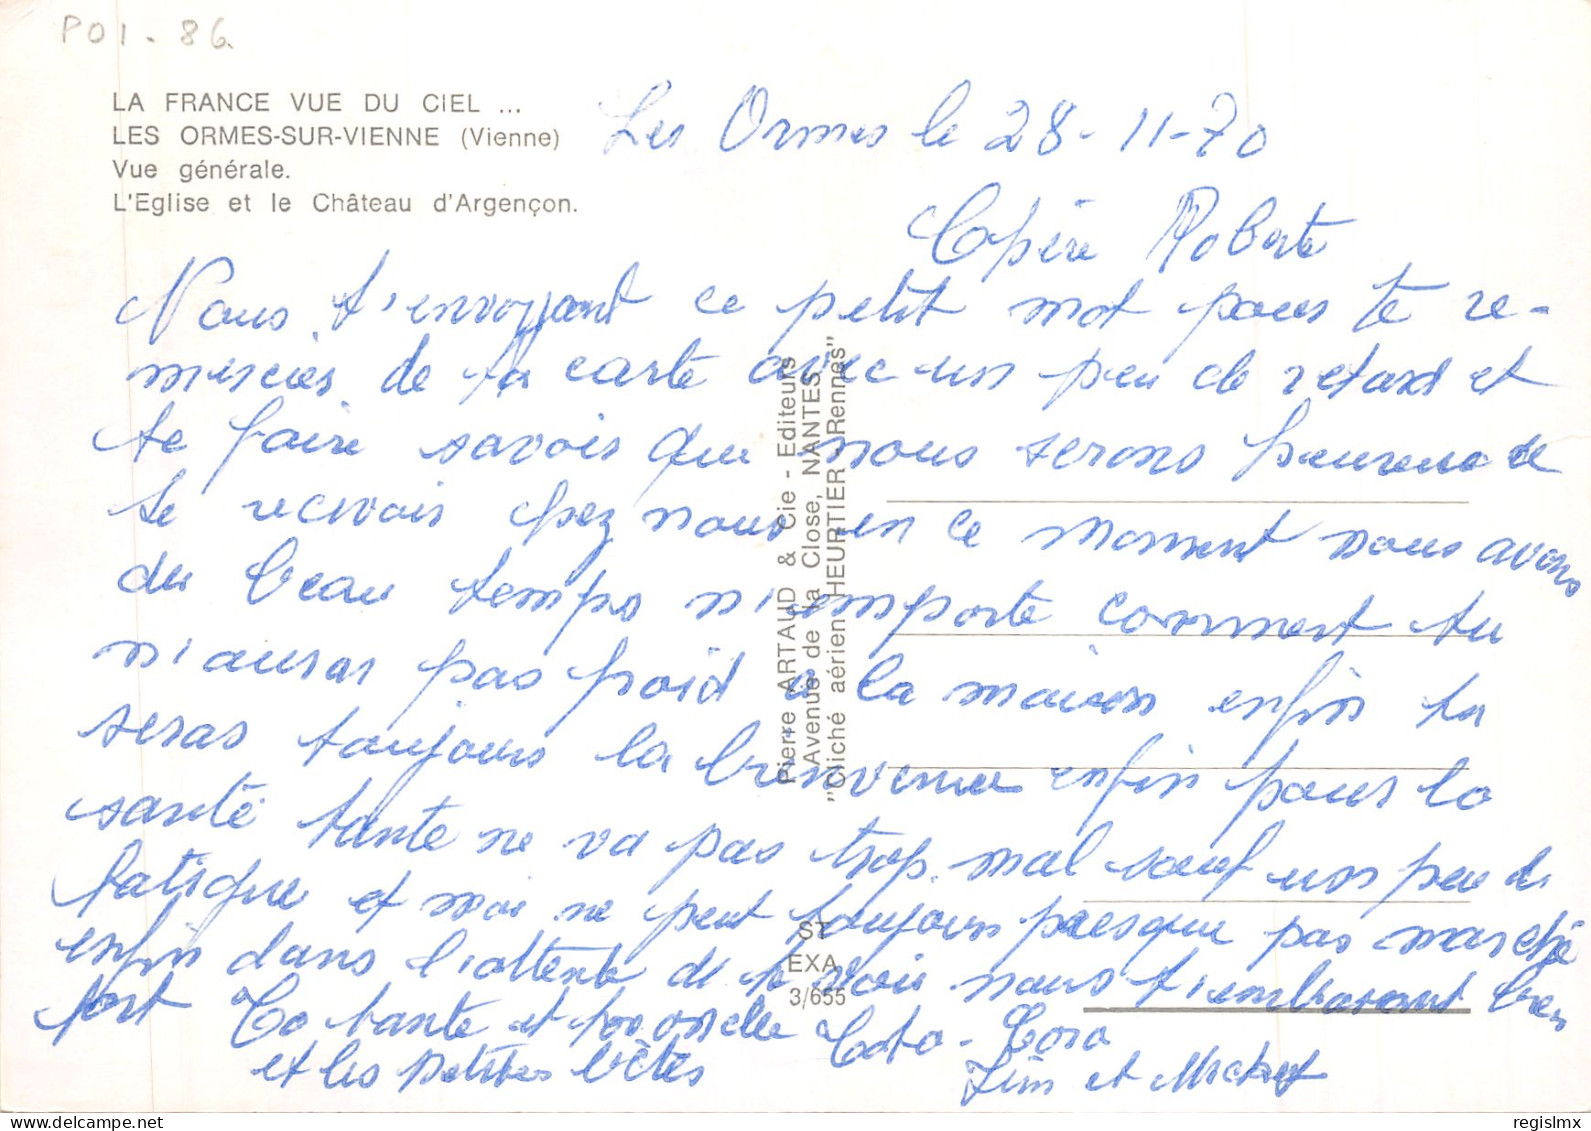 POI - 86
LA FRANCE VUE DU CIEL ...
LES ORMES-SUR-VIENNE (Vienne)
Vue générale.
L'Eglise et le Château d'Argençon.
Les Ormes le 28-11-70
Robert
Nous t'envoyant ce petit mot pour te re-
mercier de ta carte avec un peu de retard et
te faire savoir que nous serons heureux de
te recevoir chez nous en ce moment nous avons
du beau temps n'importe comment tu
n'auras pas froid à la maison enfin tu
seras toujours la bienvenue enfin pour la
santé tante ne va pas trop mal sauf un peu de
fatigue et moi ne peut toujours presque pas marché
enfin dans l'attente de te voir nous t'embrassent bien
fort Ta tante et
et les petites bêtes
Toto - Tora
Jim et Mickey
Pierre ARTAUD & Cie - Editeurs
Avenue de la Close, NANTES
"Cliché aérien HEURTIER Rennes"
ST
EXA
3/655
regislmx